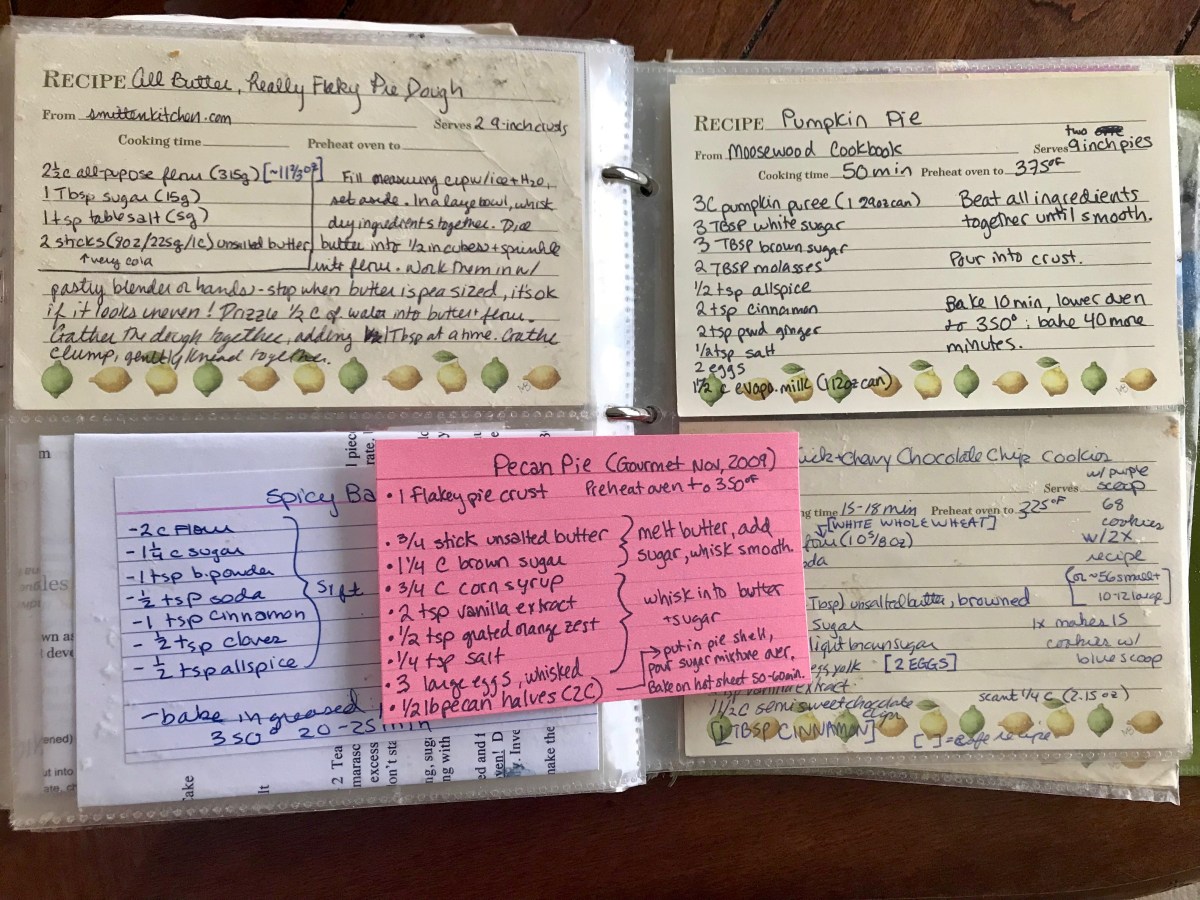 RECIPE All Butter, Really Flaky Pie Dough
From smittenkitchen.com
Serves 2 9-inch crusts
Cooking time Preheat oven to
2½ c all-purpose flour (315g) [~11⅔oz]
1 Tbsp sugar (15g)
1 tsp table salt (5g)
2 sticks (8oz/225g/1c) unsalted butter
↑very cold
Fill measuring cup w/ice + H₂O,
set aside. In a large bowl, whisk
dry ingredients together. Dice
butter into ½ in cubes + sprinkle
into flour. Work them in w/
pastry blender or hands - stop when butter is pea sized, it's ok
if it looks uneven! Drizzle ½ c of water into butter + flour.
Gather the dough together, adding 1 Tbsp at a time. Gather
clump, gently knead together.
RECIPE Pumpkin Pie
From Moosewood Cookbook
Serves two 9 inch pies
Cooking time 50 min Preheat oven to 375°F
3C pumpkin puree (1 29oz can)
3 TBSP white sugar
3 TBSP brown sugar
2 TBSP molasses
½ tsp allspice
2 tsp cinnamon
2 tsp pwd ginger
½ tsp salt
2 eggs
1½ c evapo. milk (1 12oz can)
Beat all ingredients
together until smooth.
Pour into crust.
Bake 10 min, lower oven
to 350°; bake 40 more
minutes.
Spicy Ba
-2 c flour
-1¼ c sugar
-1 tsp b. powder
-½ tsp soda
-1 tsp cinnamon
-½ tsp cloves
-½ tsp allspice
Sift
-bake in greased
350° 20-25 min
Pecan Pie (Gourmet Nov, 2009)
• 1 Flakey pie crust Preheat oven to 350°F
• ¾ stick unsalted butter
• 1¼ C brown sugar
melt butter, add
sugar, whisk smooth.
• ¾ C corn syrup
• 2 tsp vanilla extract
• ½ tsp grated orange zest
• ¼ tsp salt
• 3 large eggs, whisked
whisk into butter
+ sugar
• ½ lb pecan halves (2C)
→ put in pie shell,
pour sugar mixture over.
Bake on hot sheet 50-60 min.
Chewy Chocolate Chip Cookies
Serves w/ purple
scoop
ng time 15-18 min Preheat oven to 325°F
68
cookies
w/2X
recipe
(or ~56 small +
10-12 large)
[WHITE WHOLE WHEAT]
flour (10⅗/8oz)
oda
Tbsp) unsalted butter, browned
sugar
light brown sugar
egg yolk [2 EGGS]
vanilla extract
1½ C semisweet chocolate
chips
[1 TBSP CINNAMON]
1x makes 15
cookies w/
blue scoop
scant ¼ c (2.15 oz)
[ ] = cafe recipe
m
wn as
ened)
at into
Cake
lt
2 Tea
marasc
excess
on't sta
ng, sug
ng with
ed and f
ven! D
Inve
make the